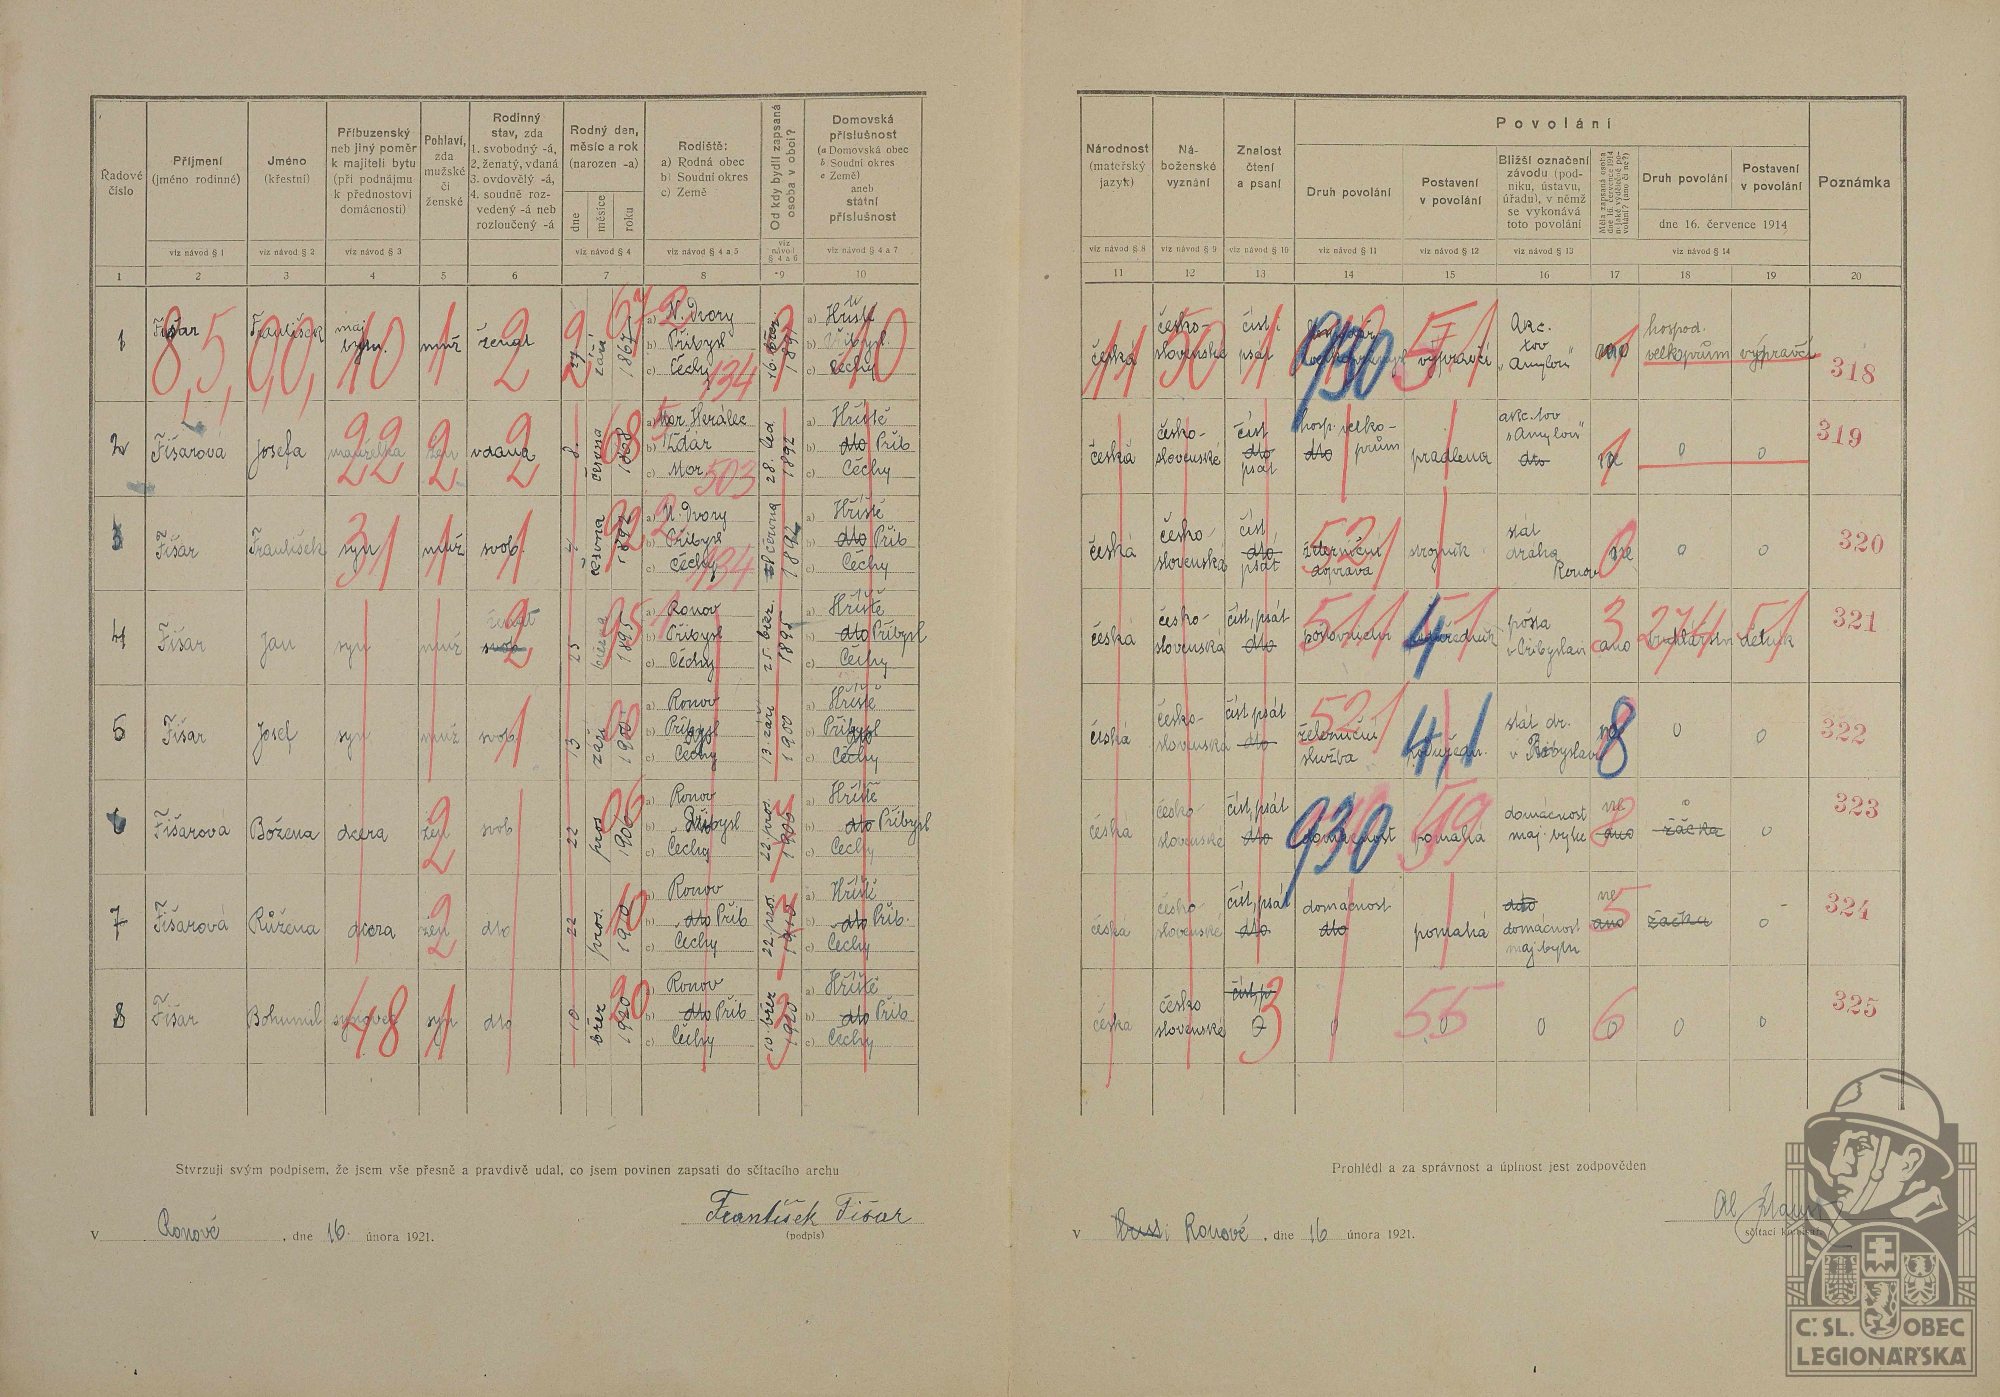 Řadové číslo
Příjmení (jméno rodinné)
viz návod § 1
Jméno (křestní)
viz návod § 2
Příbuzenský neb jiný poměr k majiteli bytu (při podnájmu k přednostovi domácnosti)
viz návod § 3
Pohlaví, zda mužské či ženské
Rodinný stav, zda
1. svobodný -á,
2. ženatý, vdaná
3. ovdovělý -á,
4. soudně rozvedený -á neb rozloučený -á
Rodný den, měsíc a rok (narozen -a)
dne
měsíce
roku
viz návod § 4
Rodiště:
a) Rodná obec
b) Soudní okres
c) Země
viz návod § 4 a 5
Od kdy bydlí zapsaná osoba v obci?
viz návod § 4 a 6
Domovská příslušnost
(a Domovská obec
b Soudní okres
c Země)
aneb
státní příslušnost
viz návod § 4 a 7
1 2 3 4 5 6 7 8 9 10
Národnost (mateřský jazyk)
viz návod § 8
Náboženské vyznání
viz návod § 9
Znalost čtení a psaní
viz návod § 10
Povolání
Druh povolání
viz návod § 11
Postavení v povolání
viz návod § 12
Bližší označení závodu (podniku, ústavu, úřadu), v němž se vykonává toto povolání
viz návod § 13
Druh povolání
Postavení v povolání
dne 16. července 1914
viz návod § 14
Poznámka
11 12 13 14 15 16 17 18 19 20
1 Fišar František maj. bytu muž ženat 27 září 1867 a) N. Dvory b) Přibysl c) Čechy 1891 a) Hřiště b) Přibysl c) Čechy
67 2
8,5, 0,0, 10 1 2 2 134 10
česká československé číst psát výpravčí Akc. tov. "Amylon" hospod. velkoprům výpravčí 318
11 50 1 930 51 1
2 Fišarová Josefa manželka žen vdaná 8. června 1868 a) Mor. Herálec b) Žďár c) Mor 28. led 1892 a) Hřiště b) dto Přib c) Čechy
22 2 2 68 5 503
česká československé číst dto psát hosp. velkoprům dto pradlena akc. tov "Amylon" dto ne 0 0 319
1
3 Fišar František syn muž svob. 4 června 1892 a) N. Dvory b) Přibysl c) Čechy června 1892 a) Hřiště b) dto Přib c) Čechy
31 1 1 92 2 134
česká československá číst dto psát železniční doprava strojník stát dráha Ronov ne 0 0 320
521 0
4 Fišar Jan syn muž ženat svob. 25 března 1895 a) Ronov b) Přibysl c) Čechy 25. břez. 1895 a) Hřiště b) dto Přibysl c) Čechy
2 95 1
česká československá číst, psát dto poštovnictví pošta v Přibyslavi ano dělník 321
511 4 51 3 274 51
5 Fišar Josef syn muž svob. 13 září 1900 a) Ronov b) Přibysl c) Čechy 13. září 1900 a) Hřiště b) Přibysl c) Čechy
1 00
česká československá číst, psát dto železniční služba podúředn. stát dr. v Přibyslavi ne 0 0 322
521 4,1 8
6 Fišarová Božena dcera žen svob 22 pros. 1906 a) Ronov b) Přibysl c) Čechy 22 pros. 1906 a) Hřiště b) dto Přibysl c) Čechy
2 06
česká československé číst, psát dto domácnost pomáhá domácnost maj. bytu ne ano 0 žačka 0 323
930 59 8
7 Fišarová Růžena dcera žen dto 22 pros. 1910 a) Ronov b) dto Přib c) Čechy 22. pros. 1910 a) Hřiště b) dto Přib. c) Čechy
2 10
česká československé číst, psát dto domácnost dto pomáhá dto domácnost maj. bytu ne ano žačka 0 324
5
8 Fišar Bohumil synovec syn dto 10 břez 1920 a) Ronov b) dto Přib c) Čechy 10. břez 1920 a) Hřiště b) dto Přib c) Čechy
48 1 20 2
česká československé číst, p 0 0 0 0 0 0 0 325
3 55 6
Stvrzuji svým podpisem, že jsem vše přesně a pravdivě udal, co jsem povinen zapsati do sčítacího archu
František Fišar
v Ronově, dne 16. února 1921.
(podpis)
Prohlédl a za správnost a úplnost jest zodpověden
v Ronově, dne 16 února 1921.
sčítací komisař
Č. SL. OBEC
LEGIONÁŘSKÁ